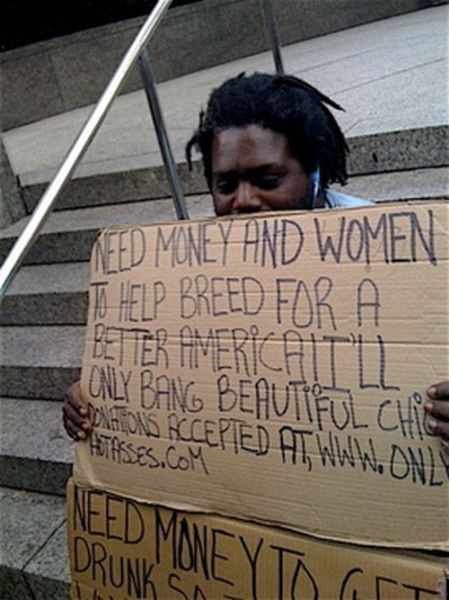 NEED MONEY AND WOMEN
TO HELP BREED FOR A
BETTER AMERICA!I'LL
ONLY BANG BEAUTIFUL CHI
DONATIONS ACCEPTED AT, WWW.ONL
HOTASSES.COM
NEED MONEY TO GET
DRUNK SO I